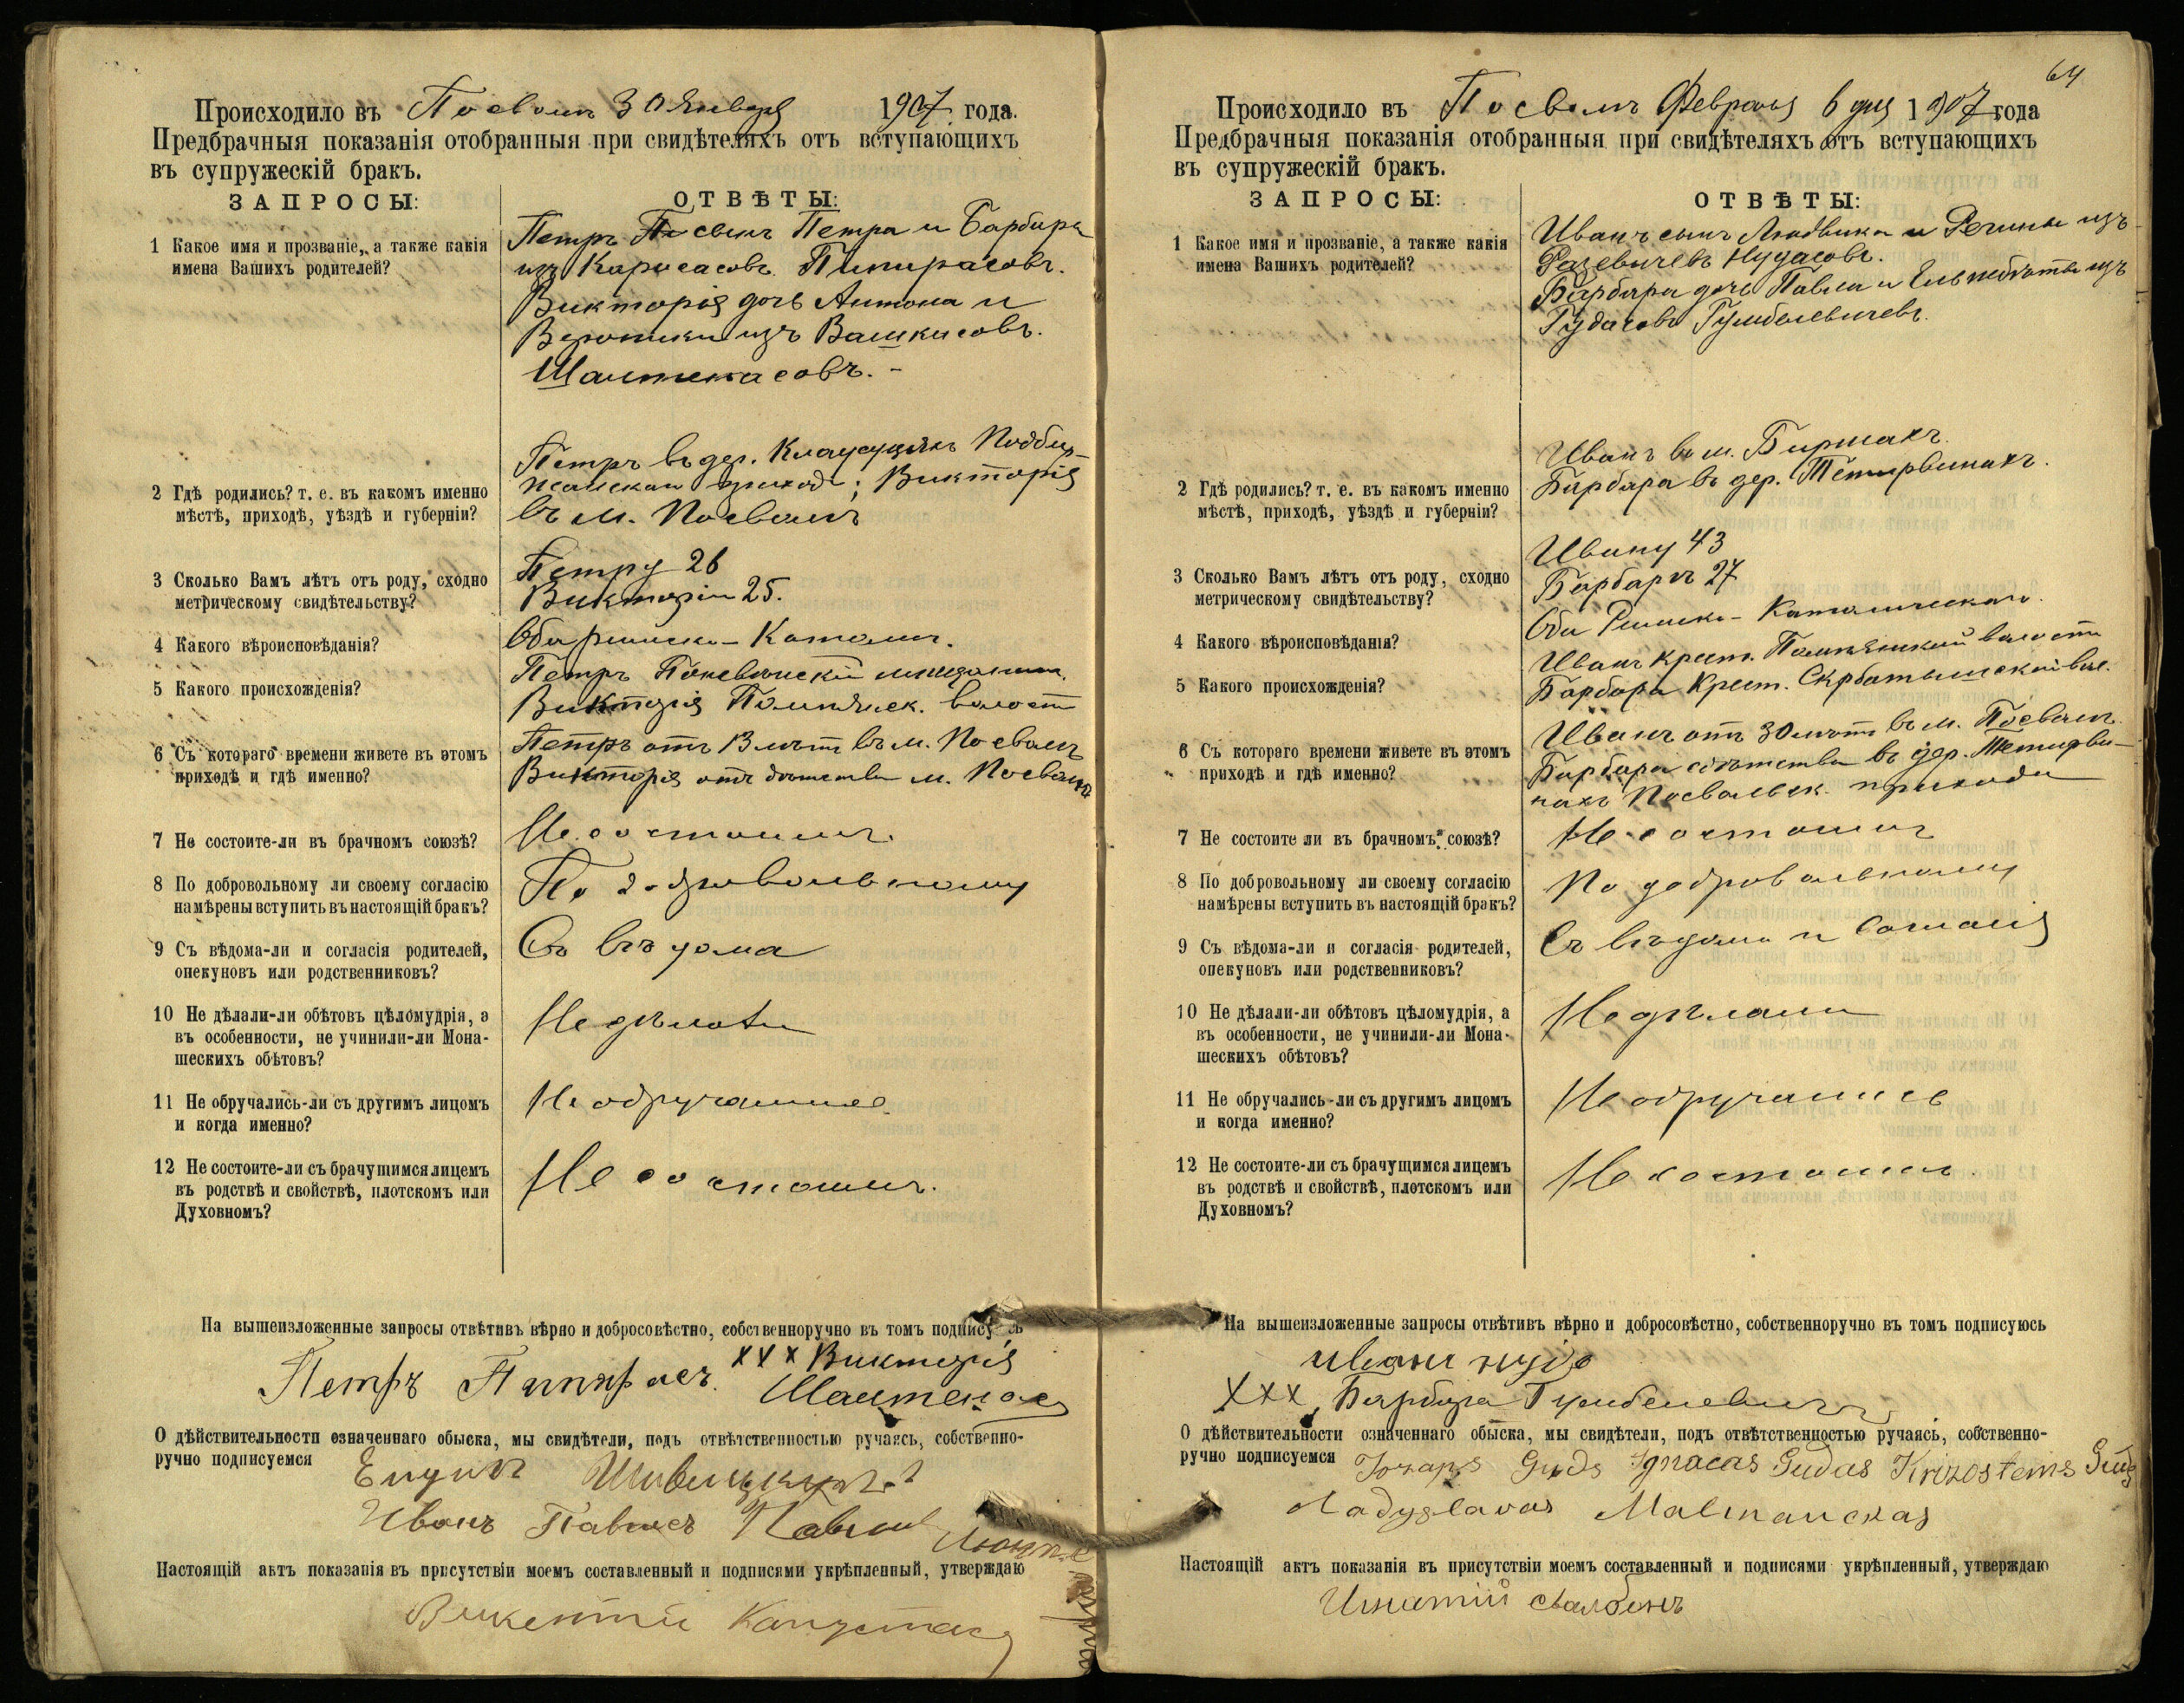 Происходило въ Посволѣ 30 Января 1907 года.
Предбрачныя показанія отобранныя при свидѣтеляхъ отъ вступающихъ
въ супружескій бракъ.
ЗАПРОСЫ:
ОТВѢТЫ:
1 Какое имя и прозваніе, а также какія
имена Вашихъ родителей?
Петръ сынъ Петра и Барбары
изъ
Викторія дочь Антона и
Вероники изъ Вашкисовъ.
Шалтенасовъ. -
2 Гдѣ родились? т. е. въ какомъ именно
мѣстѣ, приходѣ, уѣздѣ и губерніи?
Петръ въ дер.
Викторія
въ м. Посволѣ
3 Сколько Вамъ лѣтъ отъ роду, сходно
метрическому свидѣтельству?
Петру 26
Викторіи 25.
4 Какого вѣроисповѣданія?
Оба римско-Католич.
5 Какого происхожденія?
Петръ Поневѣжскій мѣщанинъ.
Викторія волост
6 Съ котораго времени живете въ этомъ
приходѣ и гдѣ именно?
Петръ отъ лѣтъ въ м. Посволѣ
Викторія отъ дѣтства м. Посволѣ
7 Не состоите-ли въ брачномъ союзѣ?
Не состоимъ.
8 По добровольному ли своему согласію
намѣрены вступить въ настоящій бракъ?
По добровольному
9 Съ вѣдома-ли и согласія родителей,
опекуновъ или родственниковъ?
Съ вѣдома
10 Не дѣлали-ли обѣтовъ цѣломудрія, а
въ особенности, не учинили-ли Мона-
шескихъ обѣтовъ?
Не дѣлали
11 Не обручались-ли съ другимъ лицомъ
и когда именно?
Не обручались
12 Не состоите-ли съ брачущимся лицемъ
въ родствѣ и свойствѣ, плотскомъ или
Духовномъ?
Не состоимъ.
На вышеизложенные запросы отвѣтивъ вѣрно и добросовѣстно, собственноручно въ томъ подпису ь
Петръ ххх Викторія
Шалтенас
О дѣйствительности означеннаго обыска, мы свидѣтели, подъ отвѣтственностью ручаясь, собственно-
ручно подписуемся
Иванъ
Настоящій актъ показанія въ присутствіи моемъ составленный и подписями укрѣпленный, утверждаю
Викентій Капустас
64
Происходило въ Посволѣ Февраля 6 дня 1907 года
Предбрачныя показанія отобранныя при свидѣтеляхъ отъ вступающихъ
въ супружескій бракъ.
ЗАПРОСЫ:
ОТВѢТЫ:
1 Какое имя и прозваніе, а также какія
имена Вашихъ родителей?
Иванъ сынъ Людвика и Регины изъ
Рацевичевъ Нудасовъ.
Барбара дочь Павла и Ельжбѣты изъ
Гудасовъ Гумбелевичевъ.
2 Гдѣ родились? т. е. въ какомъ именно
мѣстѣ, приходѣ, уѣздѣ и губерніи?
Иванъ въ м. Биржахъ.
Барбара въ дер. Тетирвинахъ.
3 Сколько Вамъ лѣтъ отъ роду, сходно
метрическому свидѣтельству?
Ивану 43
Барбарѣ 27
4 Какого вѣроисповѣданія?
Оба Римско-Католическаго.
5 Какого происхожденія?
Иванъ крест. волости
Барбара Крест. вол.
6 Съ котораго времени живете въ этомъ
приходѣ и гдѣ именно?
Иванъ отъ 30 лѣтъ въ м. Посволѣ.
Барбара съ дѣтства въ дер. Тетирви-
нахъ Посвольск. прихода
7 Не состоите ли въ брачномъ союзѣ?
Не состоимъ
8 По добровольному ли своему согласію
намѣрены вступить въ настоящій бракъ?
По добровольному
9 Съ вѣдома-ли и согласія родителей,
опекуновъ или родственниковъ?
Съ вѣдома и согласія
10 Не дѣлали-ли обѣтовъ цѣломудрія, а
въ особенности, не учинили-ли Мона-
шескихъ обѣтовъ?
Не дѣлали
11 Не обручались-ли съ другимъ лицомъ
и когда именно?
Не обручались
12 Не состоите-ли съ брачущимся лицемъ
въ родствѣ и свойствѣ, плотскомъ или
Духовномъ?
Не состоимъ.
На вышеизложенные запросы отвѣтивъ вѣрно и добросовѣстно, собственноручно въ томъ подписуюсь
ххх Барбара
О дѣйствительности означеннаго обыска, мы свидѣтели, подъ отвѣтственностью ручаясь, собственно-
ручно подписуемся Ignacas Gudas
Настоящій актъ показанія въ присутствіи моемъ составленный и подписями укрѣпленный, утверждаю
Игнатій